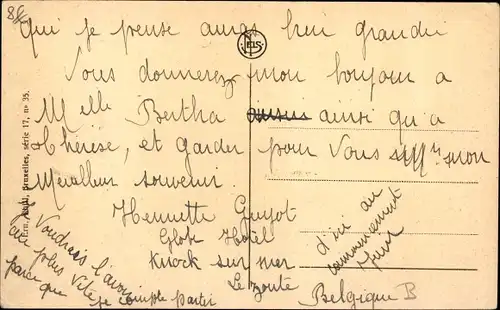 Qui je pense auras bien grandi
Vous donnerez mon bonjour a
Melle Bertha ainsi qu'a
Thérèse, et garder pour Vous mon
Meilleur souvenir
Henriette Guyot
Globe Hotel
Knock sur mer
Le zoute
Belgique B
d'ici au
commencement
Juin
Je Voudrais l'avoir
au plus Vite
parce que je compte partir
NELS
Ern. Thill, Bruxelles, série 17, n° 35.